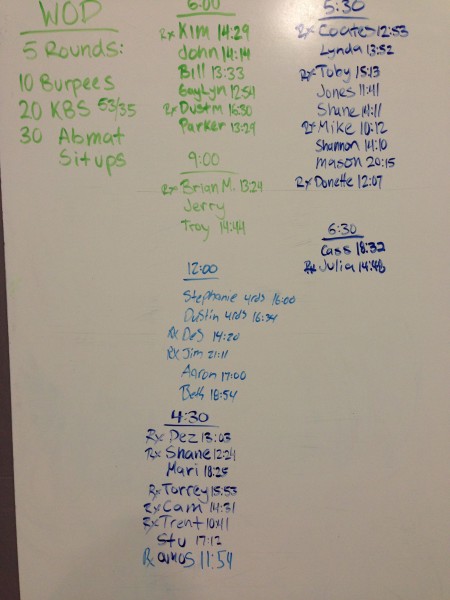 WOD
5 Rounds:
10 Burpees
20 KBS 53/35
30 Abmat
Situps
6:00
Rx Kim 14:29
John 14:14
Bill 13:33
GayLyn 12:54
Rx Dustin 16:30
Parker 13:29
9:00
Rx Brian M. 13:24
Jerry
Troy 14:44
12:00
Stephanie 4rds 16:00
Dustin 4rds 16:34
Rx Des 14:20
Rx Jim 21:11
Aaron 17:00
Beth 18:54
4:30
Rx Dez 13:03
Rx Shane 12:24
Mari 18:25
Rx Torrey 15:53
Rx Cam 14:31
Rx Trent 10:41
Stu 17:12
Rx amos 11:54
5:30
Rx Coates 12:53
Lynda 13:52
Rx Toby 15:13
Jones 11:41
Shane 14:11
Rx Mike 10:12
Shannon 14:10
mason 20:15
Rx Donette 12:07
6:30
Cass 18:32
Rx Julia 14:48